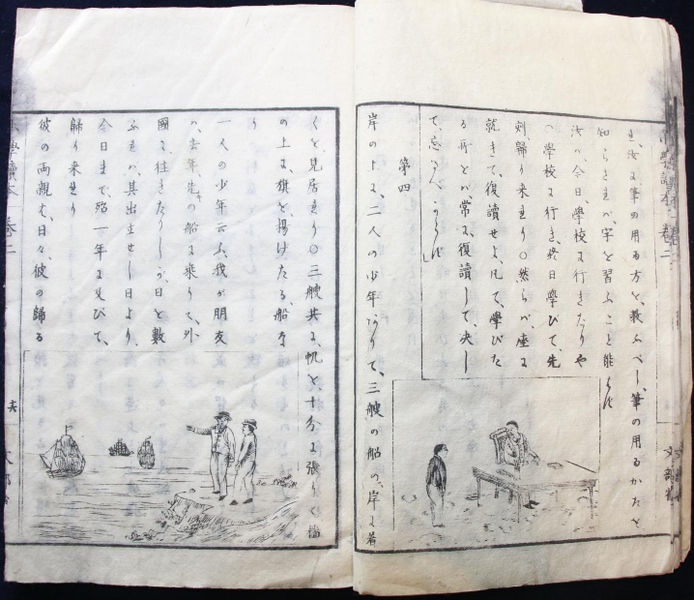 小學讀本 巻二
文部省
き、汝に筆の用る方を、教ふべし、筆の用るかたを
知らざれバ、字を習ふこと能はず
汝ハ、今日、學校に行きたりや
〇學校に行き、終日學びて、先
刻歸り来れり〇然らバ、座に
就きて、復讀せよ、凡て、學びた
る所をバ常に、復讀して、决し
て、忘るべからず
第四
岸の上に、二人の少年ありて、三艘の船の、岸に着
くを見居れり〇三艘共に、帆を十分に張りて檣
の上に、旗を揚げたる、船な
り
一人の少年云ふ、我が朋友
ハ、去年、先の船に乗りて、外
國に往きたりしが、日を數
ふれバ、其出立せし日より、
今日まで、殆一年に及びて、
歸り来れり
彼の両親も、日々、彼の歸る
小學讀本 巻二
十六
文部省